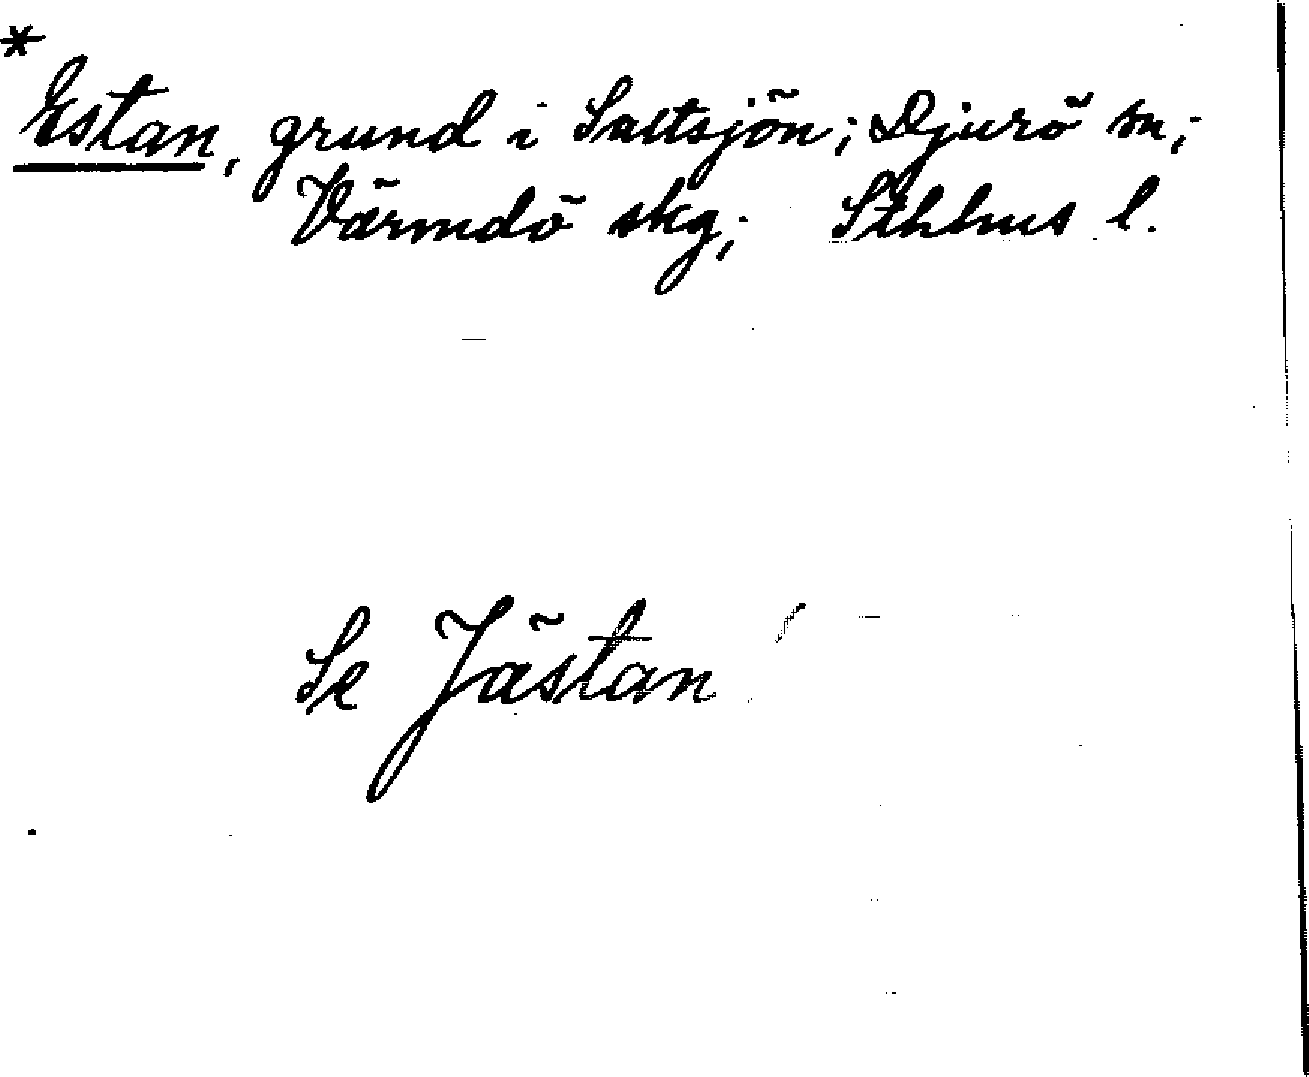 *
Estan, grund i Saltsjön; Djurö sn;
Värmdö skg; Sthlms l.
Se Jästan